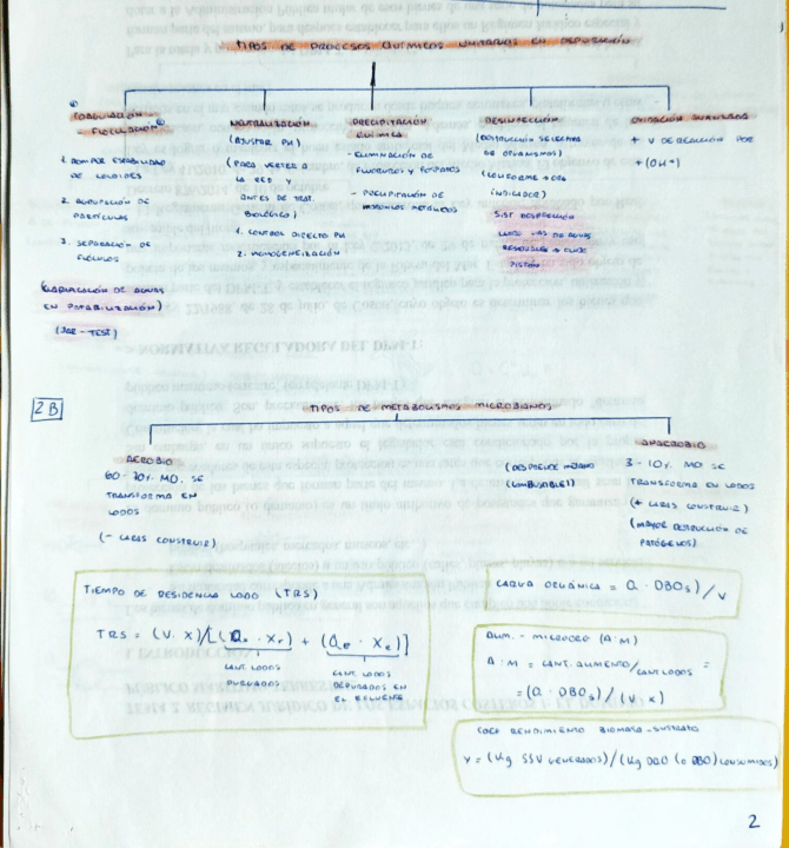 TIPOS DE PROCESOS QUÍMICOS UNITARIOS EN DEPURACIÓN
① COAGULACIÓN
- FLOCULACIÓN ②
1. ROMPER ESTABILIDAD
DE COLOIDES
2. AGRUPACIÓN DE
PARTÍCULAS
3. SEPARACIÓN DE
FLÓCULOS
(CLARIFICACIÓN DE AGUAS
EN POTABILIZACIÓN)
(JAR-TEST)
NEUTRALIZACIÓN
(AJUSTAR PH)
(PARA VERTER A
LA RED Y
ANTES DE TRAT.
BIOLÓGICO)
1. CONTROL DIRECTO PH
2. HOMOGENEIZACIÓN
PRECIPITACIÓN
QUÍMICA
- ELIMINACIÓN DE
FLUORUROS Y FOSFATOS
- PRECIPITACIÓN DE
METÁLICOS
DESINFECCIÓN
(DESTRUCCIÓN SELECTIVA
DE ORGANISMOS)
(COLIFORME → ORG
INDICADOR)
SIST DESINFECCIÓN
DE AGUAS
RESIDUALES → FLUJO
PISTÓN
OXIDACIÓN AVANZADA
+ V DE REACCIÓN POR
+ (OH·)
2B
TIPOS DE METABOLISMOS MICROBIANOS
AEROBIO
60-70%. MO. SE
TRANSFORMA EN
LODOS
(- CARAS CONSTRUIR)
ANAEROBIO
(DESPRENDE METANO
(COMBUSTIBLE))
3-10%. MO SE
TRANSFORMA EN LODOS
(+ CARAS CONSTRUIR)
(MAYOR DESTRUCCIÓN DE
PATÓGENOS)
TIEMPO DE RESIDENCIA LODO (TRS)
TRS = (V. X)/[(Qr · Xr) + (Qe · Xe)]
CANT. LODOS
PURGADOS
CANT. LODOS
DEPURADOS EN
EL EFLUENTE
CARGA ORGÁNICA = Q · DBO5)/V
ALIM. - MICROORG (A:M)
A:M = CANT. ALIMENTO/CANT LODOS =
= (Q · DBO5) / (V · X)
COEF RENDIMIENTO BIOMASA-SUSTRATO
Y = (Kg SSV GENERADOS)/(Kg DQO (o DBO) CONSUMIDOS)
2